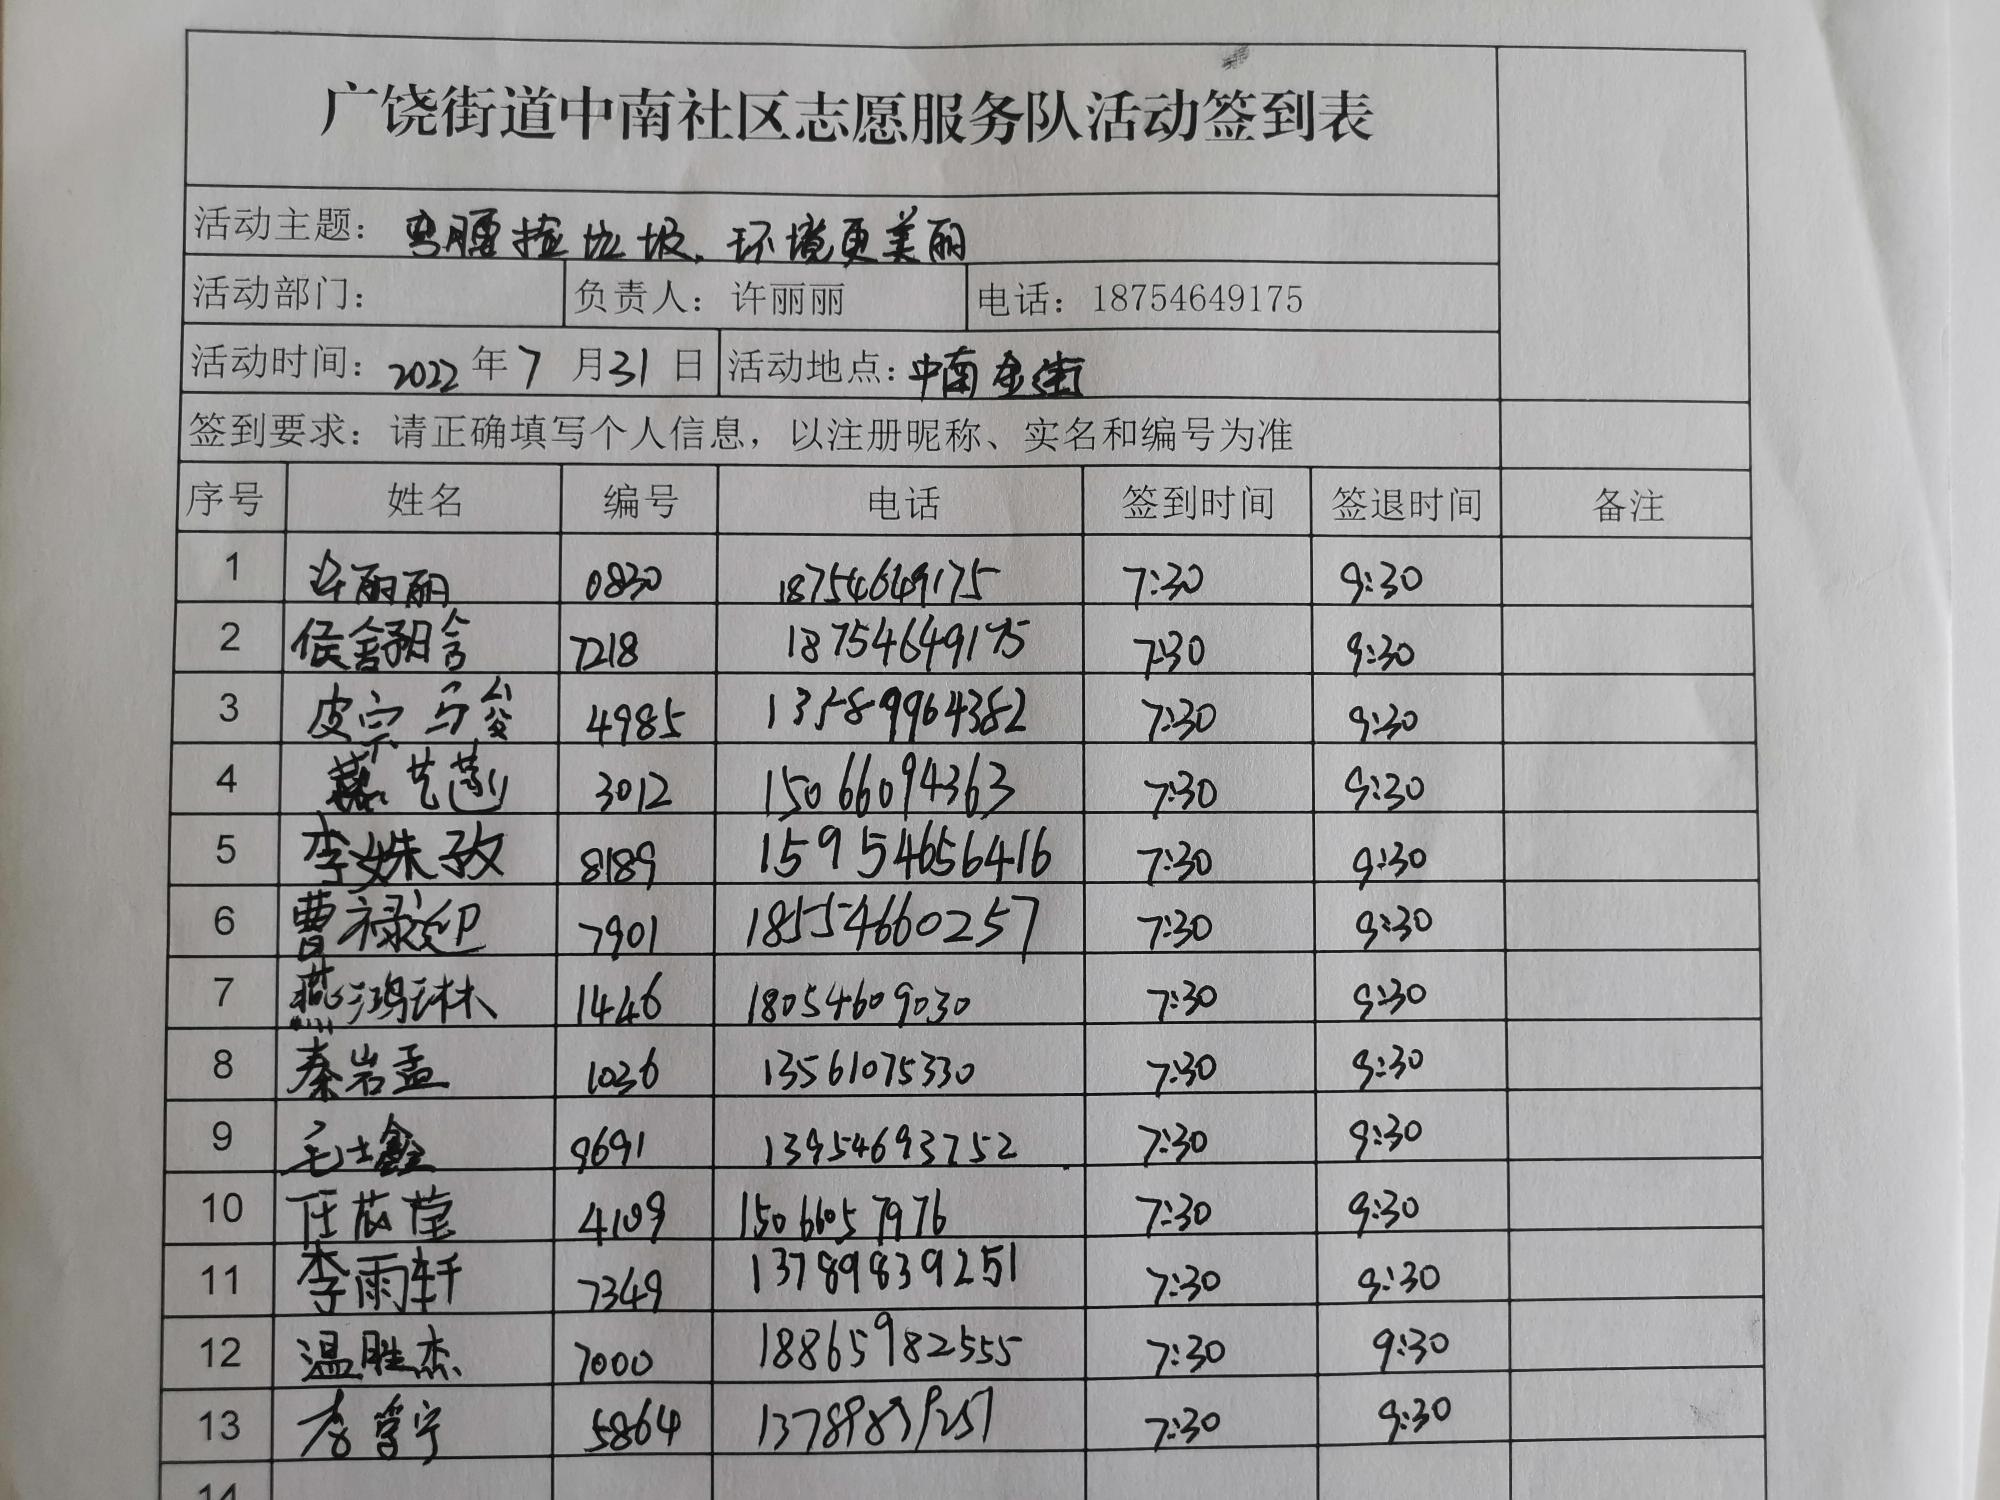 广饶街道中南社区志愿服务队活动签到表
活动主题：弯腰捡垃圾，环境更美丽
活动部门： 负责人：许丽丽 电话：18754649175
活动时间：2022年7月31日 活动地点：中南金街
签到要求：请正确填写个人信息，以注册昵称、实名和编号为准
序号 姓名 编号 电话 签到时间 签退时间 备注
1 许丽丽 0830 18754649175 7:30 9:30
2 侯舒晗 7218 18754649175 7:30 9:30
3 皮宗 4985 13589964382 7:30 9:30
4 艺 3012 15066094363 7:30 9:30
5 李姝孜 8189 15954656416 7:30 9:30
6 曹禄迎 7901 18554660257 7:30 9:30
7 燕鸿琳 1446 18054609030 7:30 9:30
8 秦岩孟 1036 13561075330 7:30 9:30
9 毛士鑫 9691 13954693752 7:30 9:30
10 任芯莹 4109 15066057976 7:30 9:30
11 李雨轩 7349 13789839251 7:30 9:30
12 温胜杰 7000 18865982555 7:30 9:30
13 李 宁 5864 13789839251 7:30 9:30
14